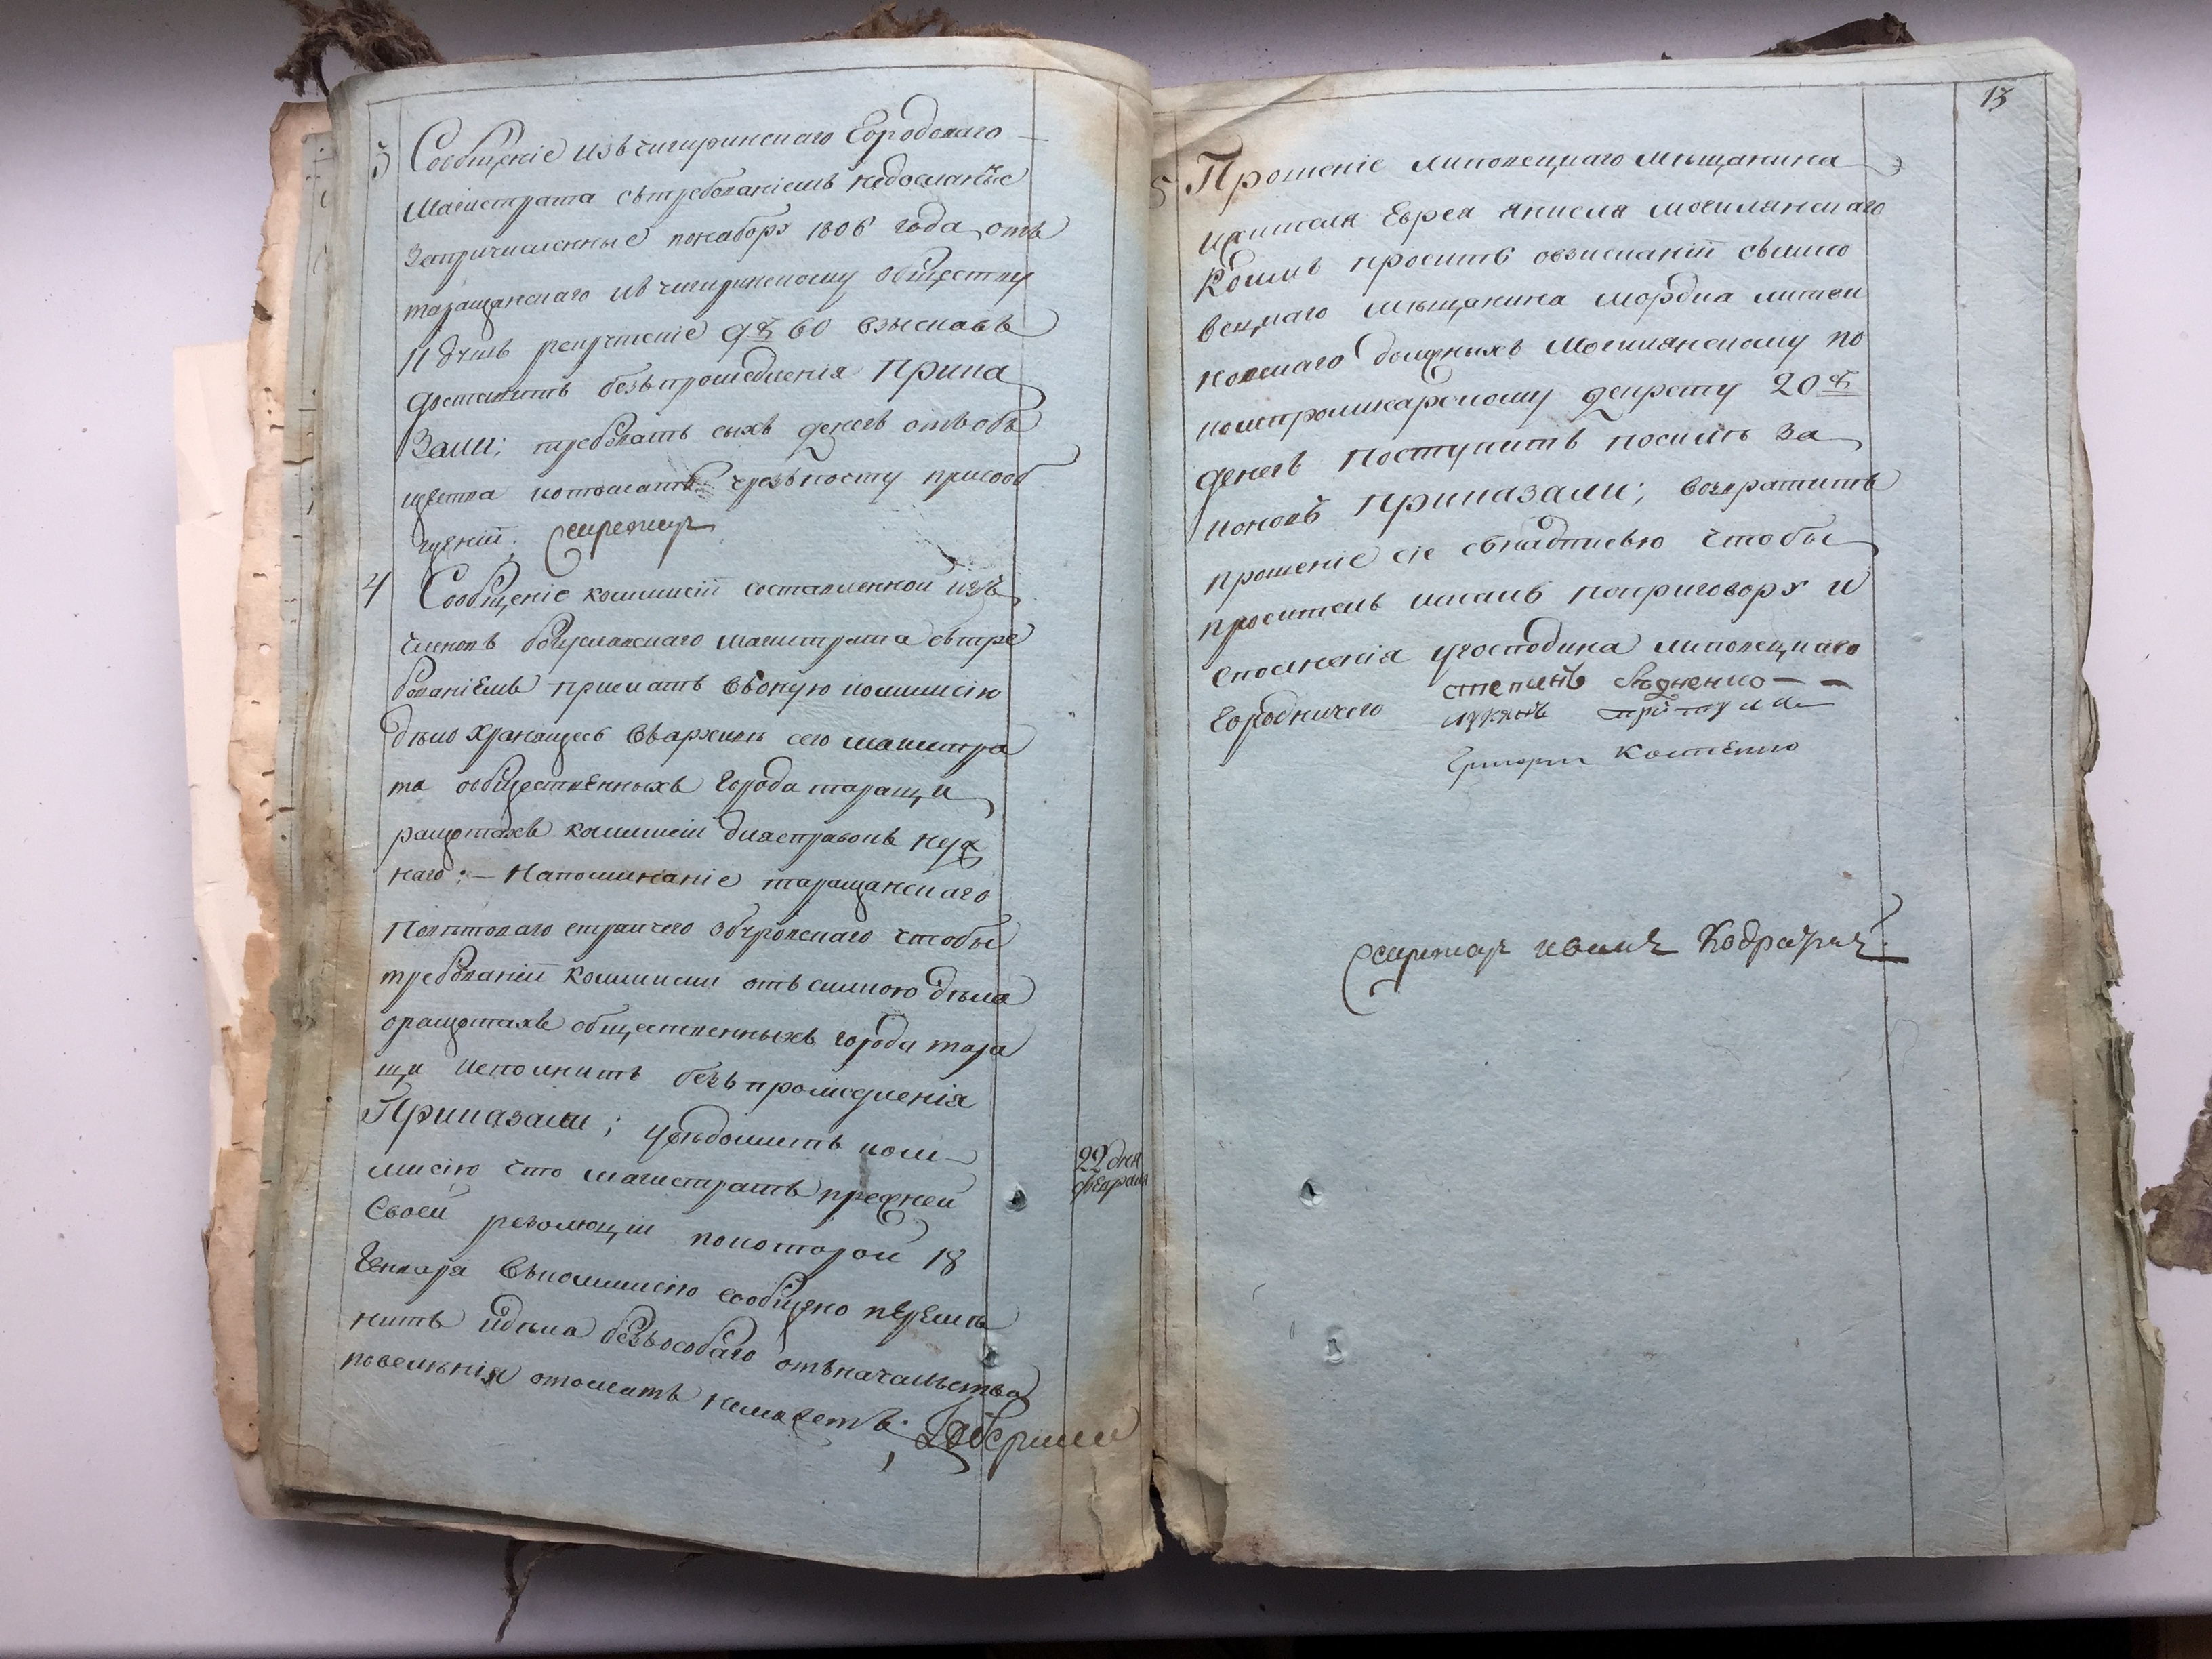 3 Сообщеніе изъ чигиринскаго Городоваго
Магистрата съ требованіемъ недосланные
запричисленные понабору 1806 года отъ
таращанскаго къ чигиринскому обществу
11 душъ рекрутские 9 р 60 взыскавъ
доставить безъ промедленія Прика
зали; требовать сыхъ денегъ отъ об
щества и отослать чрезъ посту присооб
щеніи. Секретар
4 Сообщеніе коммисіи составленной изъ
членовъ богуславскаго магистрата съ тре
бованіемъ прислать въ оную коммисію
дѣло хранящесь въ архивѣ сего магистра
та ообщественныхъ города таращи
ращотахъ коммисіи для справокъ нуж
наго; — Напоминаніе таращанскаго
Повѣтоваго стряпчего чтобы
требованіи коммисіи отъ силкою дѣла
оращотахъ общественныхъ города тара
щи исполнить безъ промедленія
Приказали; увѣдомить ком
мисію что магистратъ прежней
Своей резолюціи по которой 18
Генваря въ коммисію сообщено перемѣ
нить и дѣла безъ особаго отъ начальства
повелѣнія отослать неможетъ.
22 дня
февраля
13
5 Прошеніе липовецкаго мѣщанина
жителя Еврея янкеля могилянскаго
коимъ проситъ овзысканіи съ липо
вецкаго мѣщанина мордка литви
новскаго должныхъ Могилянскому по
полстромикарскому декрету 20 р
денегъ Поступить посилѣ за
коновъ Приказали; возвратить
прошеніе сіе съ надписью чтобы
проситель искалъ поприговору и
сполненія угосподина липовецкаго
Городничего степанъ
лукянъ притула
Григори Костенко
Секретар иванъ